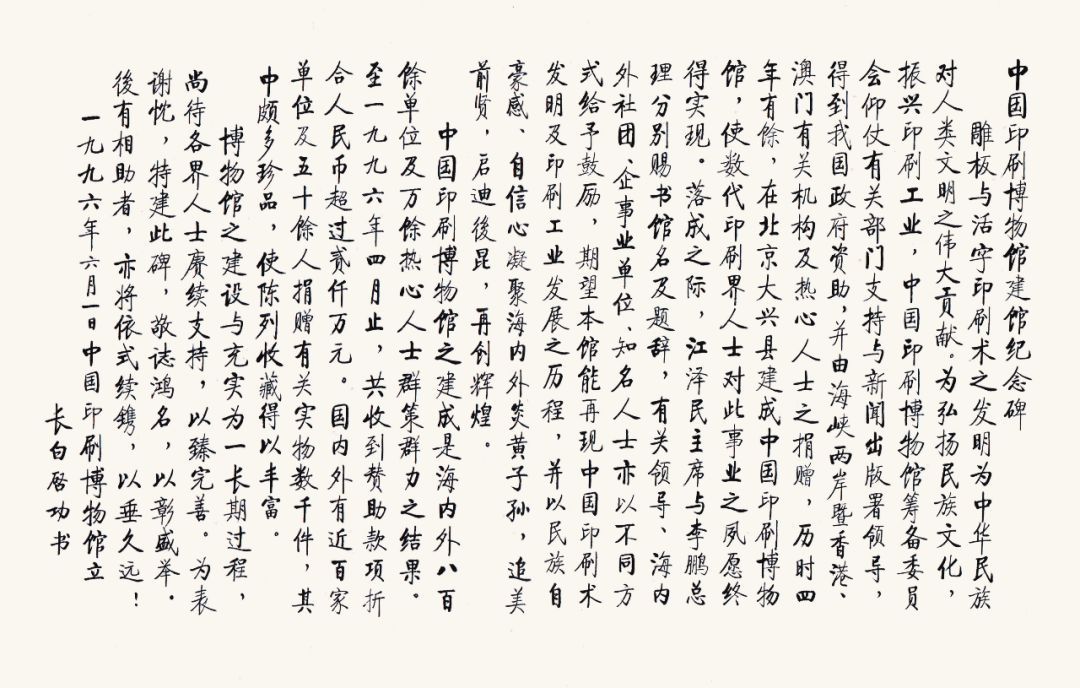 中国印刷博物馆建馆纪念碑
雕板与活字印刷术之发明为中华民族
对人类文明之伟大贡献。为弘扬民族文化，
振兴印刷工业，中国印刷博物馆筹备委员
会仰仗有关部门支持与新闻出版署领导，
得到我国政府资助，并由海峡两岸暨香港、
澳门有关机构及热心人士之捐赠，历时四
年有馀，在北京大兴县建成中国印刷博物
馆，使数代印刷界人士对此事业之夙愿终
得实现。落成之际，江泽民主席与李鹏总
理分别赐书馆名及题辞，有关领导、海内
外社团、企事业单位、知名人士亦以不同方
式给予鼓励，期望本馆能再现中国印刷术
发明及印刷工业发展之历程，并以民族自
豪感、自信心凝聚海内外炎黄子孙，追美
前贤，启迪後昆，再创辉煌。
中国印刷博物馆之建成是海内外八百
馀单位及万馀热心人士群策群力之结果。
至一九九六年四月止，共收到赞助款项折
合人民币超过贰仟万元。国内外有近百家
单位及五十馀人捐赠有关实物数千件，其
中颇多珍品，使陈列收藏得以丰富。
博物馆之建设与充实为一长期过程，
尚待各界人士赓续支持，以臻完善。为表
谢忱，特建此碑，敬志鸿名，以彰盛举。
後有相助者，亦将依式续镌，以垂久远！
一九九六年六月一日中国印刷博物馆立
长白启功书